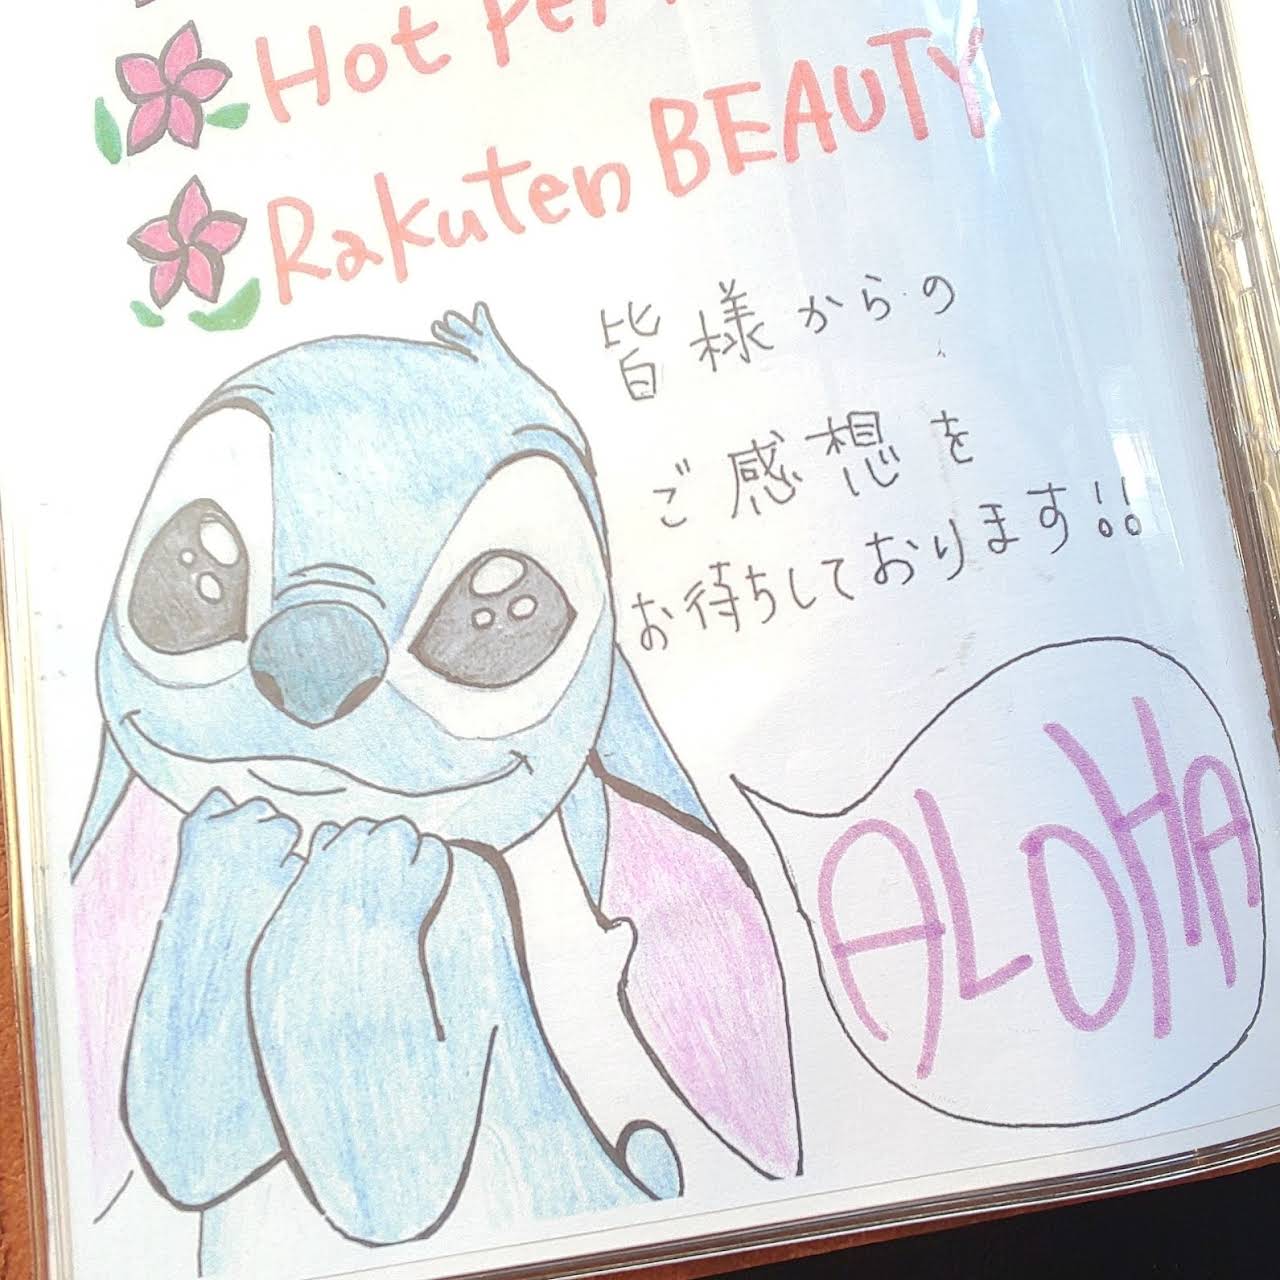 Hot Pe
Rakuten BEAUTY
皆様からの
ご感想を
お待ちしております!!
ALOHA